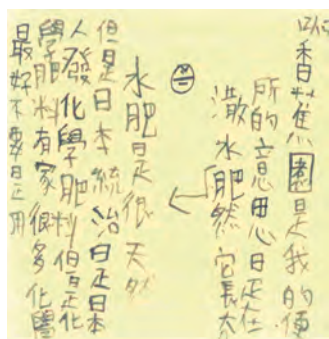 香蕉園是我的便
所的意思是在
水肥然它長大
㊁
水肥是很天然
但是日本統治時日本
人發化學肥料但是化
學肥料有家很多化學
最好不要是用